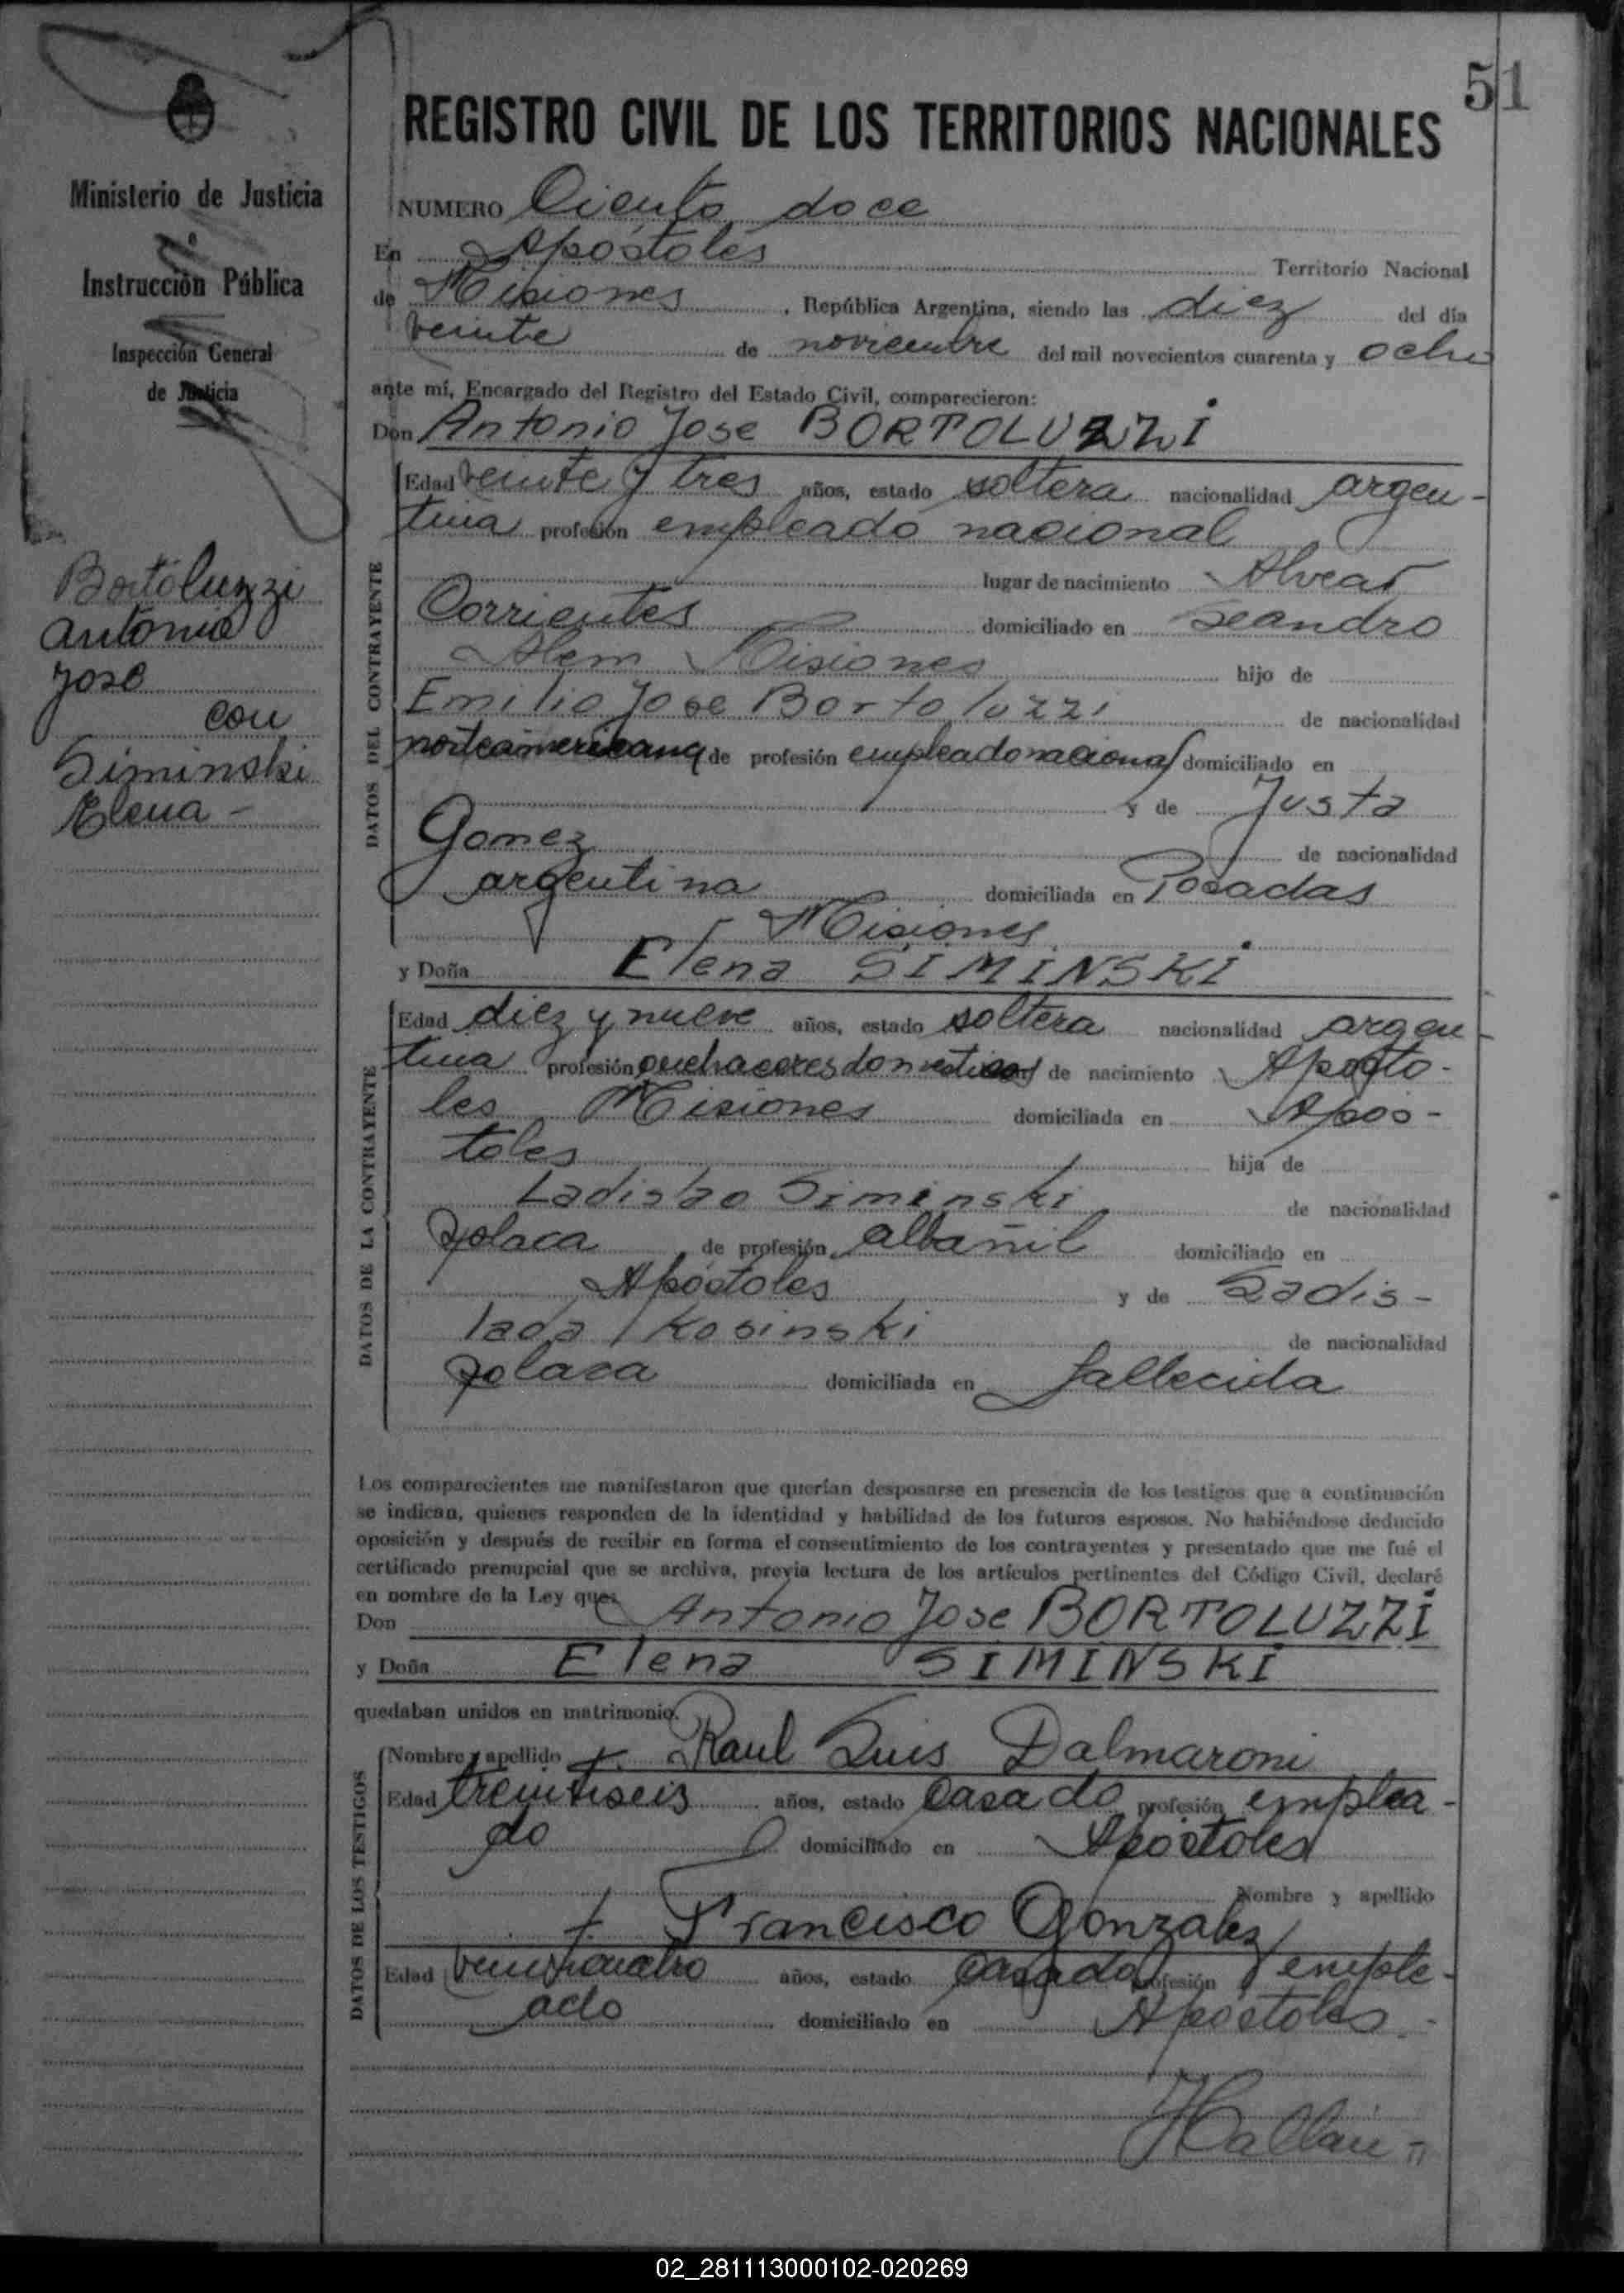 51
REGISTRO CIVIL DE LOS TERRITORIOS NACIONALES
Ministerio de Justicia
e
Instrucción Pública
Inspección General
de Justicia
Bortoluzzi
Antonio
José
con
Siminski
Elena -
NUMERO Ciento doce
En Apóstoles Territorio Nacional
de Misiones, República Argentina, siendo las diez del día
veinte de noviembre del mil novecientos cuarenta y ocho
ante mí, Encargado del Registro del Estado Civil, comparecieron:
Don Antonio Jose BORTOLUZZI
DATOS DEL CONTRAYENTE
Edad veinte y tres años, estado soltera nacionalidad argen-
tina profesión empleado nacional
lugar de nacimiento Alvear
Corrientes domiciliado en Leandro
Alem Misiones hijo de
Emilio Jose Bortoluzzi de nacionalidad
norteamericana de profesión empleado nacional domiciliado en
y de Justa
Gomez de nacionalidad
argentina domiciliada en Posadas
Misiones
y Doña Elena SIMINSKI
DATOS DE LA CONTRAYENTE
Edad diez y nueve años, estado soltera nacionalidad argen-
tina profesión quehaceres domesticos de nacimiento Aposto-
les Misiones domiciliada en Apos-
toles hija de
Ladislao Siminski de nacionalidad
polaca de profesión albañil domiciliado en
Apóstoles y de Ladis-
lada Kosinski de nacionalidad
polaca domiciliada en fallecida
Los comparecientes me manifestaron que querían desposarse en presencia de los testigos que a continuación
se indican, quienes responden de la identidad y habilidad de los futuros esposos. No habiéndose deducido
oposición y después de recibir en forma el consentimiento de los contrayentes y presentado que me fué el
certificado prenupcial que se archiva, previa lectura de los artículos pertinentes del Código Civil, declaré
en nombre de la Ley que:
Don Antonio Jose BORTOLUZZI
y Doña Elena SIMINSKI
quedaban unidos en matrimonio.
DATOS DE LOS TESTIGOS
Nombre y apellido + Raul Luis Dalmaroni
Edad treintiseis años, estado casado profesión emplea-
do domiciliado en Apóstoles
Nombre y apellido
+ Francisco Gonzalez
Edad veinticuatro años, estado casado profesión emple-
ado domiciliado en Apóstoles.-
02_281113000102-020269